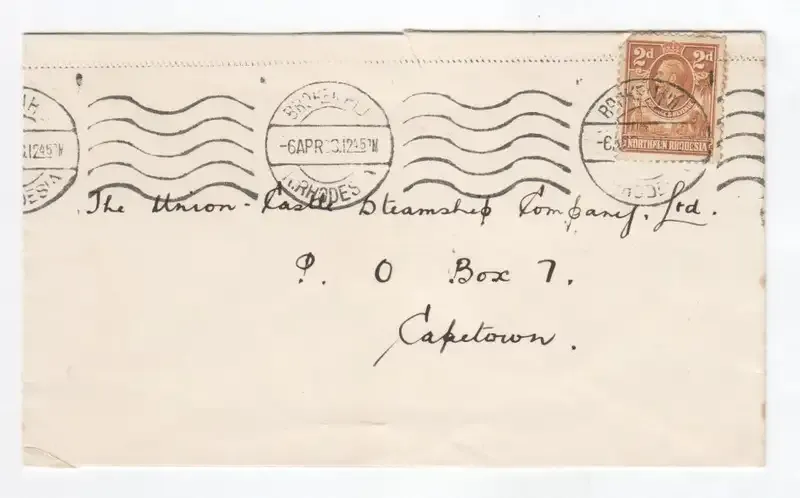 2d 2d
NORTHERN RHODESIA
BROKEN HILL
-6APR 12 45PM
N.RHODESIA
The Union-Castle Steamship Company, Ltd.
P. O Box 7.
Capetown.